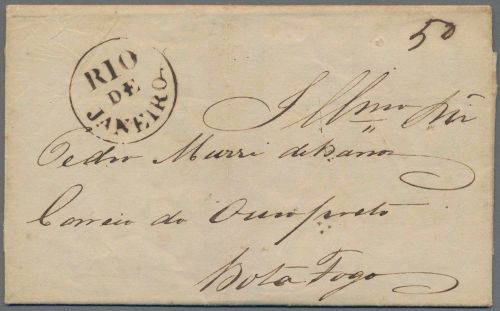 50
RIO
DE
JANEIRO
Illmo Snr
Pedro Murri de
Correio do Ouro preto
Bota Fogo